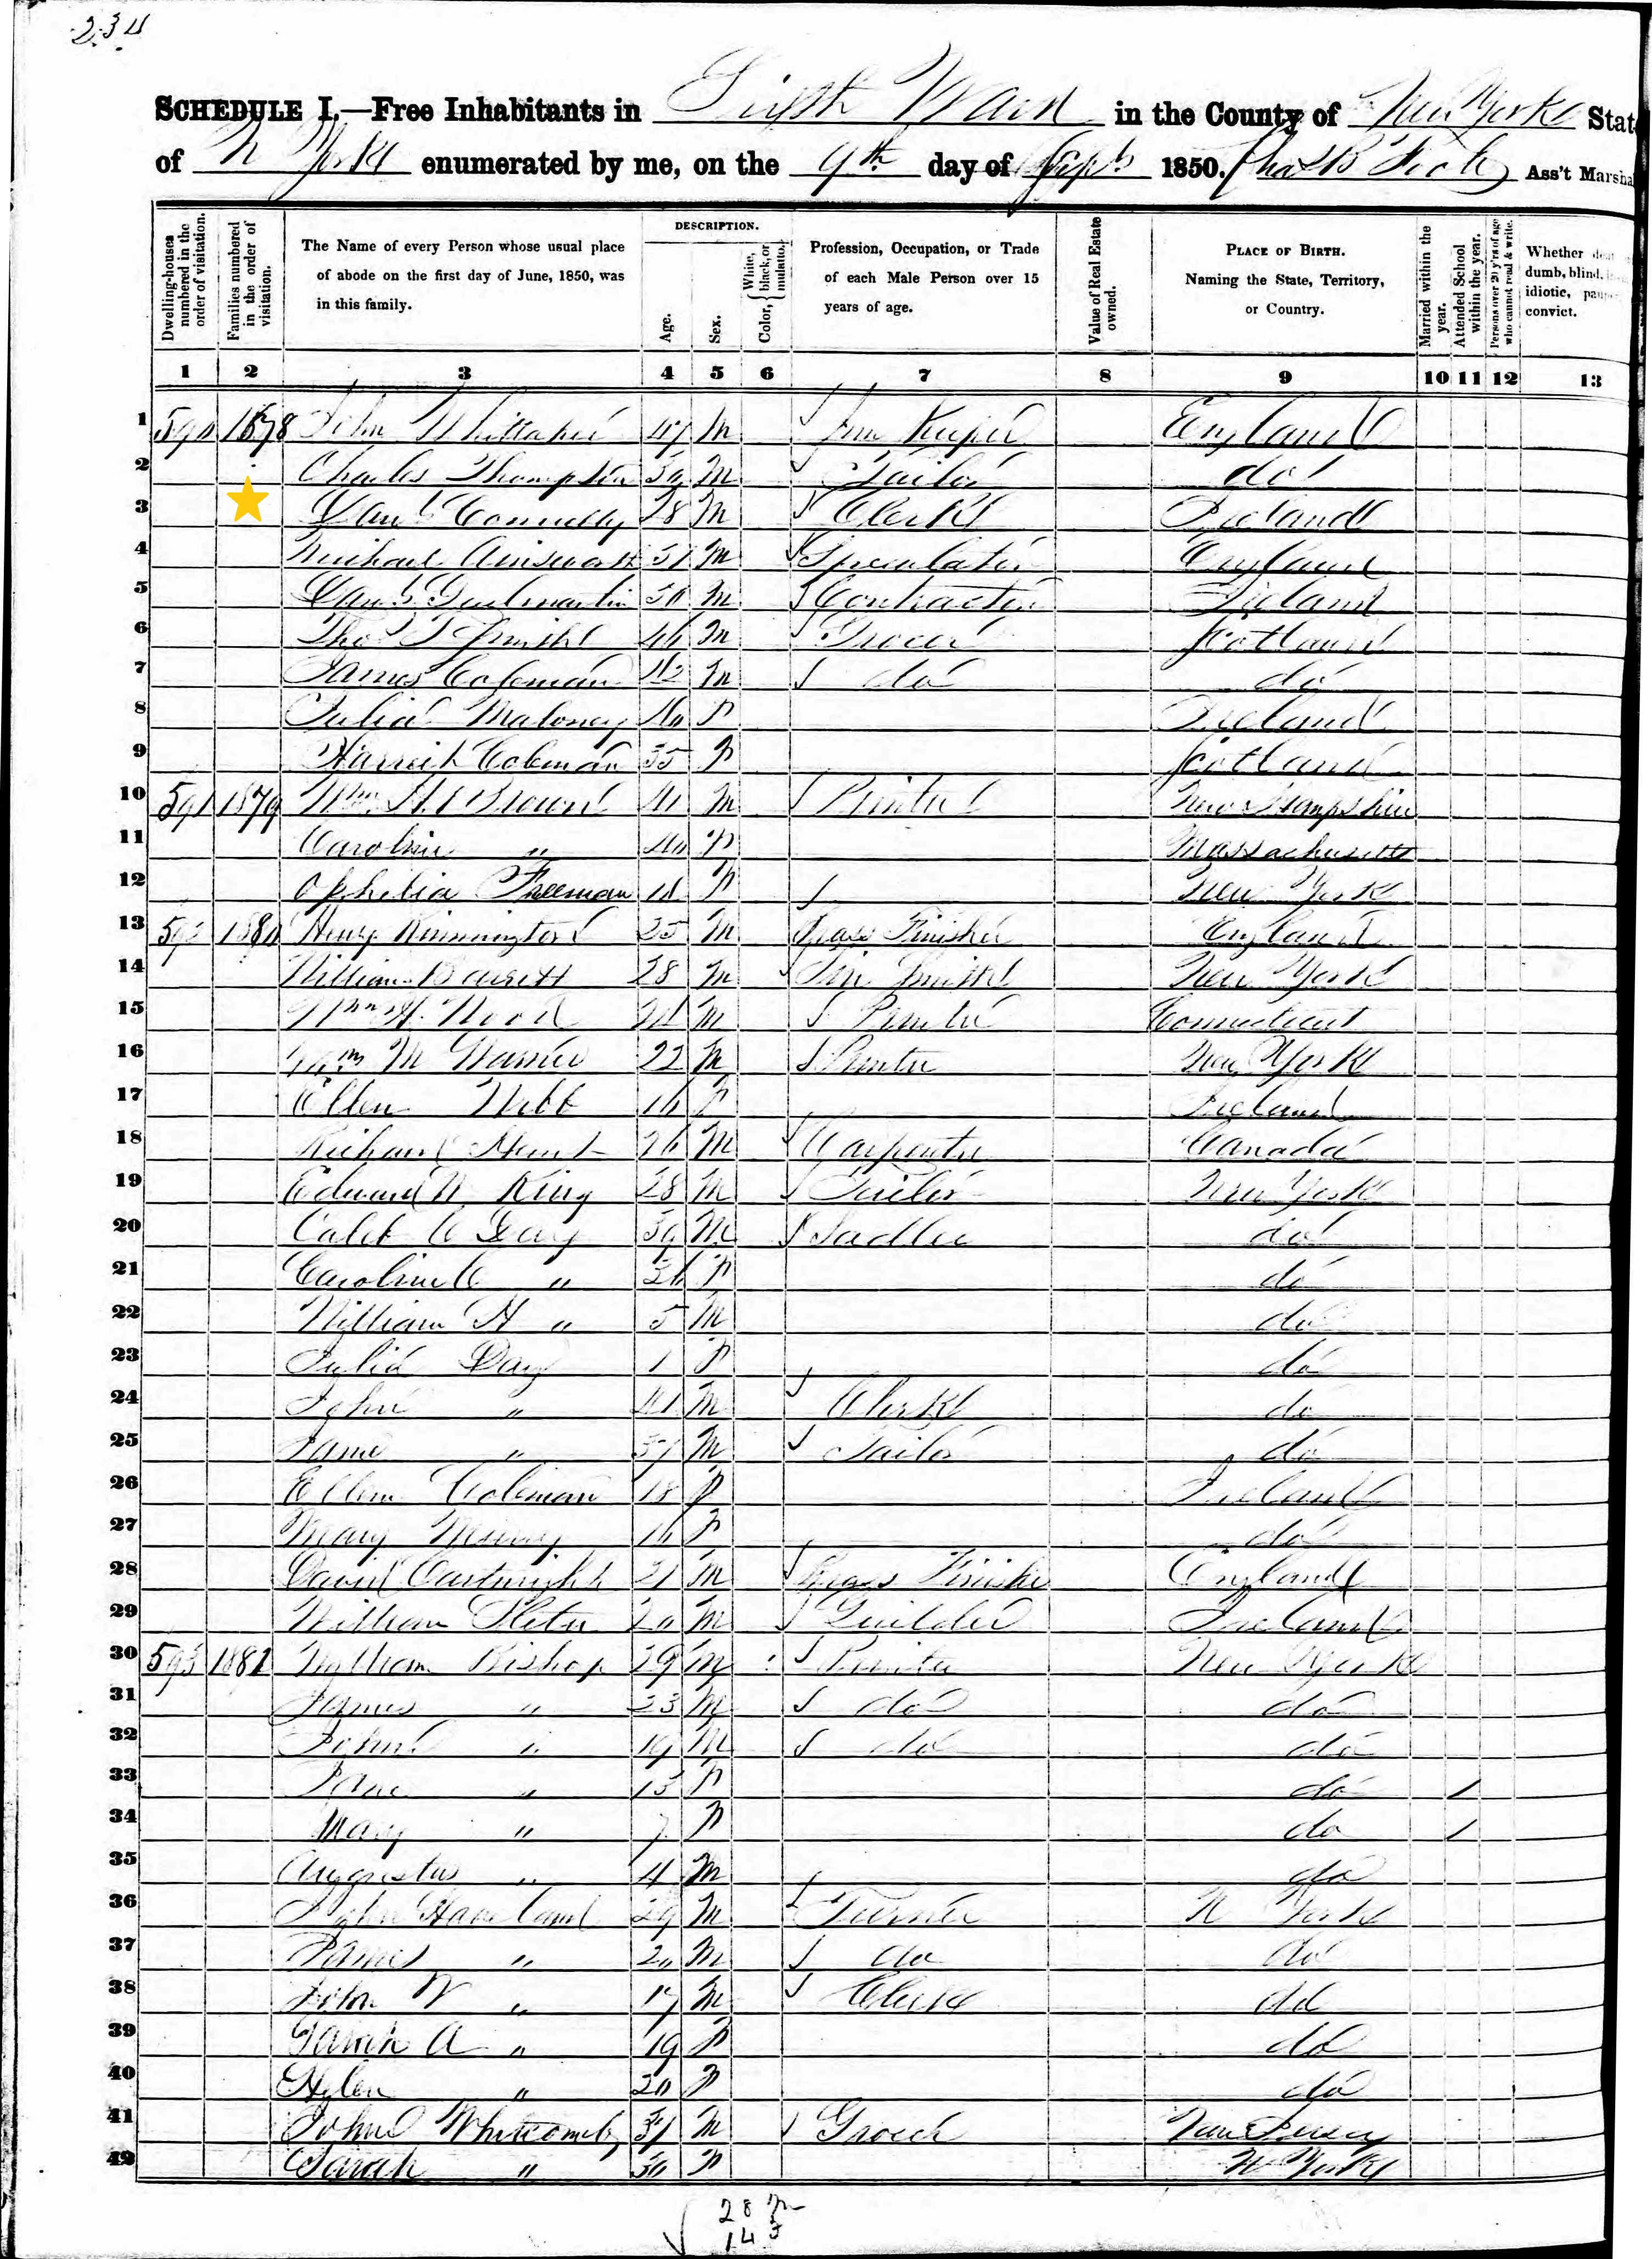 234
SCHEDULE I.—Free Inhabitants in Ward in the County of New York State
of N York enumerated by me, on the 9th day of Sept 1850. Chas B Ass't Marshal
DESCRIPTION.
Dwelling-houses numbered in the order of visitation.
Families numbered in the order of visitation.
The Name of every Person whose usual place of abode on the first day of June, 1850, was in this family.
Age.
Sex.
Color, { White, black, or mulatto.
Profession, Occupation, or Trade of each Male Person over 15 years of age.
Value of Real Estate owned.
PLACE OF BIRTH. Naming the State, Territory, or Country.
Married within the year.
Attended School within the year.
Persons over 20 y'rs of age who cannot read & write.
Whether deaf dumb, blind, idiotic, pauper convict.
1 2 3 4 5 6 7 8 9 10 11 12 13
1 590 1878 John Whittaker 47 M Inn Keeper England
2 Charles Thompson M Tailor do
3 Danl Connelly 28 M Clerk Ireland
4 Michael Ainsworth M Speculator England
5 Danl M Contractor Ireland
6 Thos Smith M Grocer Scotland
7 James Coleman 42 M do do
8 Julia Maloney F Ireland
9 Harriet Coleman 35 F Scotland
10 591 1879 Wm H Brown M Printer New Hampshire
11 Caroline " 40 F Massachusetts
12 Ophelia Freeman F New York
13 592 1880 Henry 25 M Brass Finisher England
14 William Barrett 28 M Tin Smith New York
15 Wm H. Wood M Printer Connecticut
16 Wm M Warner 22 M Printer New York
17 Ellen Webb 16 F Ireland
18 Richard Hunt 26 M Carpenter Canada
19 Edward W King 28 M Tailor New York
20 Caleb C Day 39 M Sadler do
21 Caroline C " F do
22 William H " 5 M do
23 Julia Day 1 F do
24 John " 41 M Clerk do
25 " 37 M Tailor do
26 Ellen Coleman 18 F Ireland
27 Mary Murray 16 F do
28 David Cartwright 21 M Brass Finisher England
29 William 20 M Guilder Ireland
30 593 1881 William Bishop 29 M Printer New York
31 James " 23 M do do
32 John " 19 M do do
33 Jane " 13 F do /
34 Mary " 7 F do /
35 Augustus " 4 M do
36 John Haveland 29 M Turner N York
37 James " 20 M do do
38 John W " 17 M Clerk do
39 Sarah A " 19 F do
40 Helen " 20 F do
41 John Whitcomb 31 M Grocer New Jersey
42 Sarah " 30 F N York
28 M
14 F